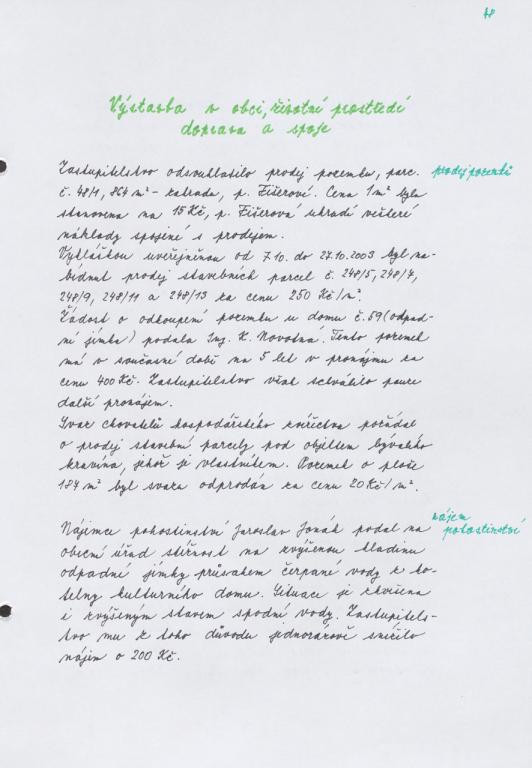 48
Výstavba v obci, životní prostředí
doprava a spoje
Zastupitelstvo odsouhlasilo prodej pozemku, parc.
prodej pozemků
č. 48/1, 864 m² - zahrada, p. Fišerové. Cena 1m² byla
stanovena na 15 Kč, p. Fišerová uhradí veškeré
náklady spojené s prodejem.
Vyhláškou uveřejněnou od 7.10. do 27.10.2003 byl na-
bídnut prodej stavebních parcel č. 248/5, 248/7,
248/9, 248/11 a 248/13 za cenu 250 Kč/m².
Žádost o odkoupení pozemku u domu č. 59 (odpad-
ní jímka) podala Ing. K. Novotná. Tento pozemek
má v současné době na 5 let v pronájmu za
cenu 400 Kč. Zastupitelstvo však schválilo pouze
další pronájem.
Svaz chovatelů hospodářského zvířectva požádal
o prodej stavební parcely pod objektem bývalého
kravína, jehož je vlastníkem. Pozemek o ploše
184 m² byl svazu odprodán za cenu 20 Kč/m².
nájem
pohostinství
Nájemce pohostinství Jaroslav Jonák podal na
obecní úřad stížnost na zvýšenou hladinu
odpadní jímky průsakem čerpané vody z ko-
telny kulturního domu. Situace je zhoršena
i zvýšeným stavem spodní vody. Zastupitels-
tvo mu z toho důvodu jednorázově snížilo
nájem o 200 Kč.